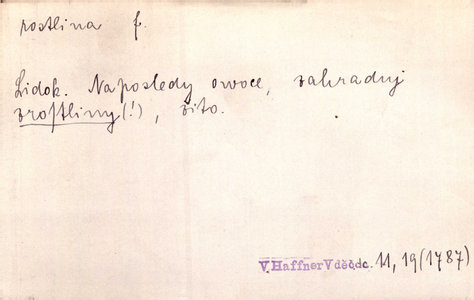 rostlina f.
Lidok. Naposledy owoce, zahradnj
zrostliny (!), žito.
V. Haffner Vděčdc. 11, 19 (1787)